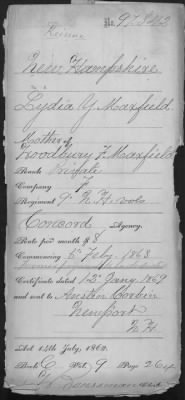 No. 97.842
New Hampshire
Lydia Y. Maxfield
Mother of
Woodbury F. Maxfield
Rank Private
Company F
Regiment 9" N.H. vols
Concord Agency.
Rate per month $8
Commencing 5" Feby. 1863
Certificate dated 12" Jany 1869
and sent to Austin Corbin
Newport
N.H.
Act 14th July, 1862.
Book E Vol. 9 Page 264